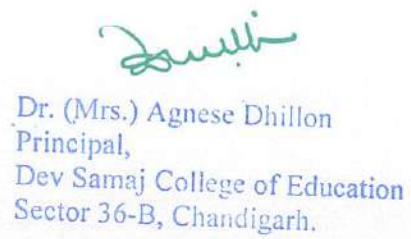 Dr. (Mrs.) Agnese Dhillon
Principal,
Dev Samaj College of Education
Sector 36-B, Chandigarh.